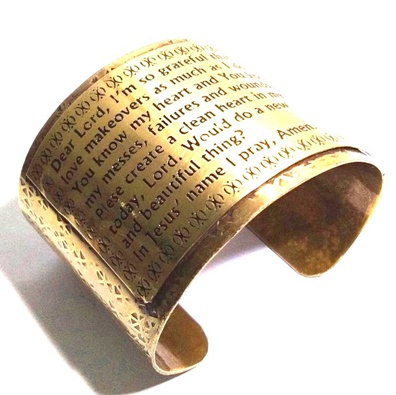 Dear Lord, I'm so grateful
love makeovers as much as I
You know my heart and You
my messes, failures and
create a clean heart in
today, Lord. Would do a new
and beautiful thing?
In Jesus' name I pray, Amen.